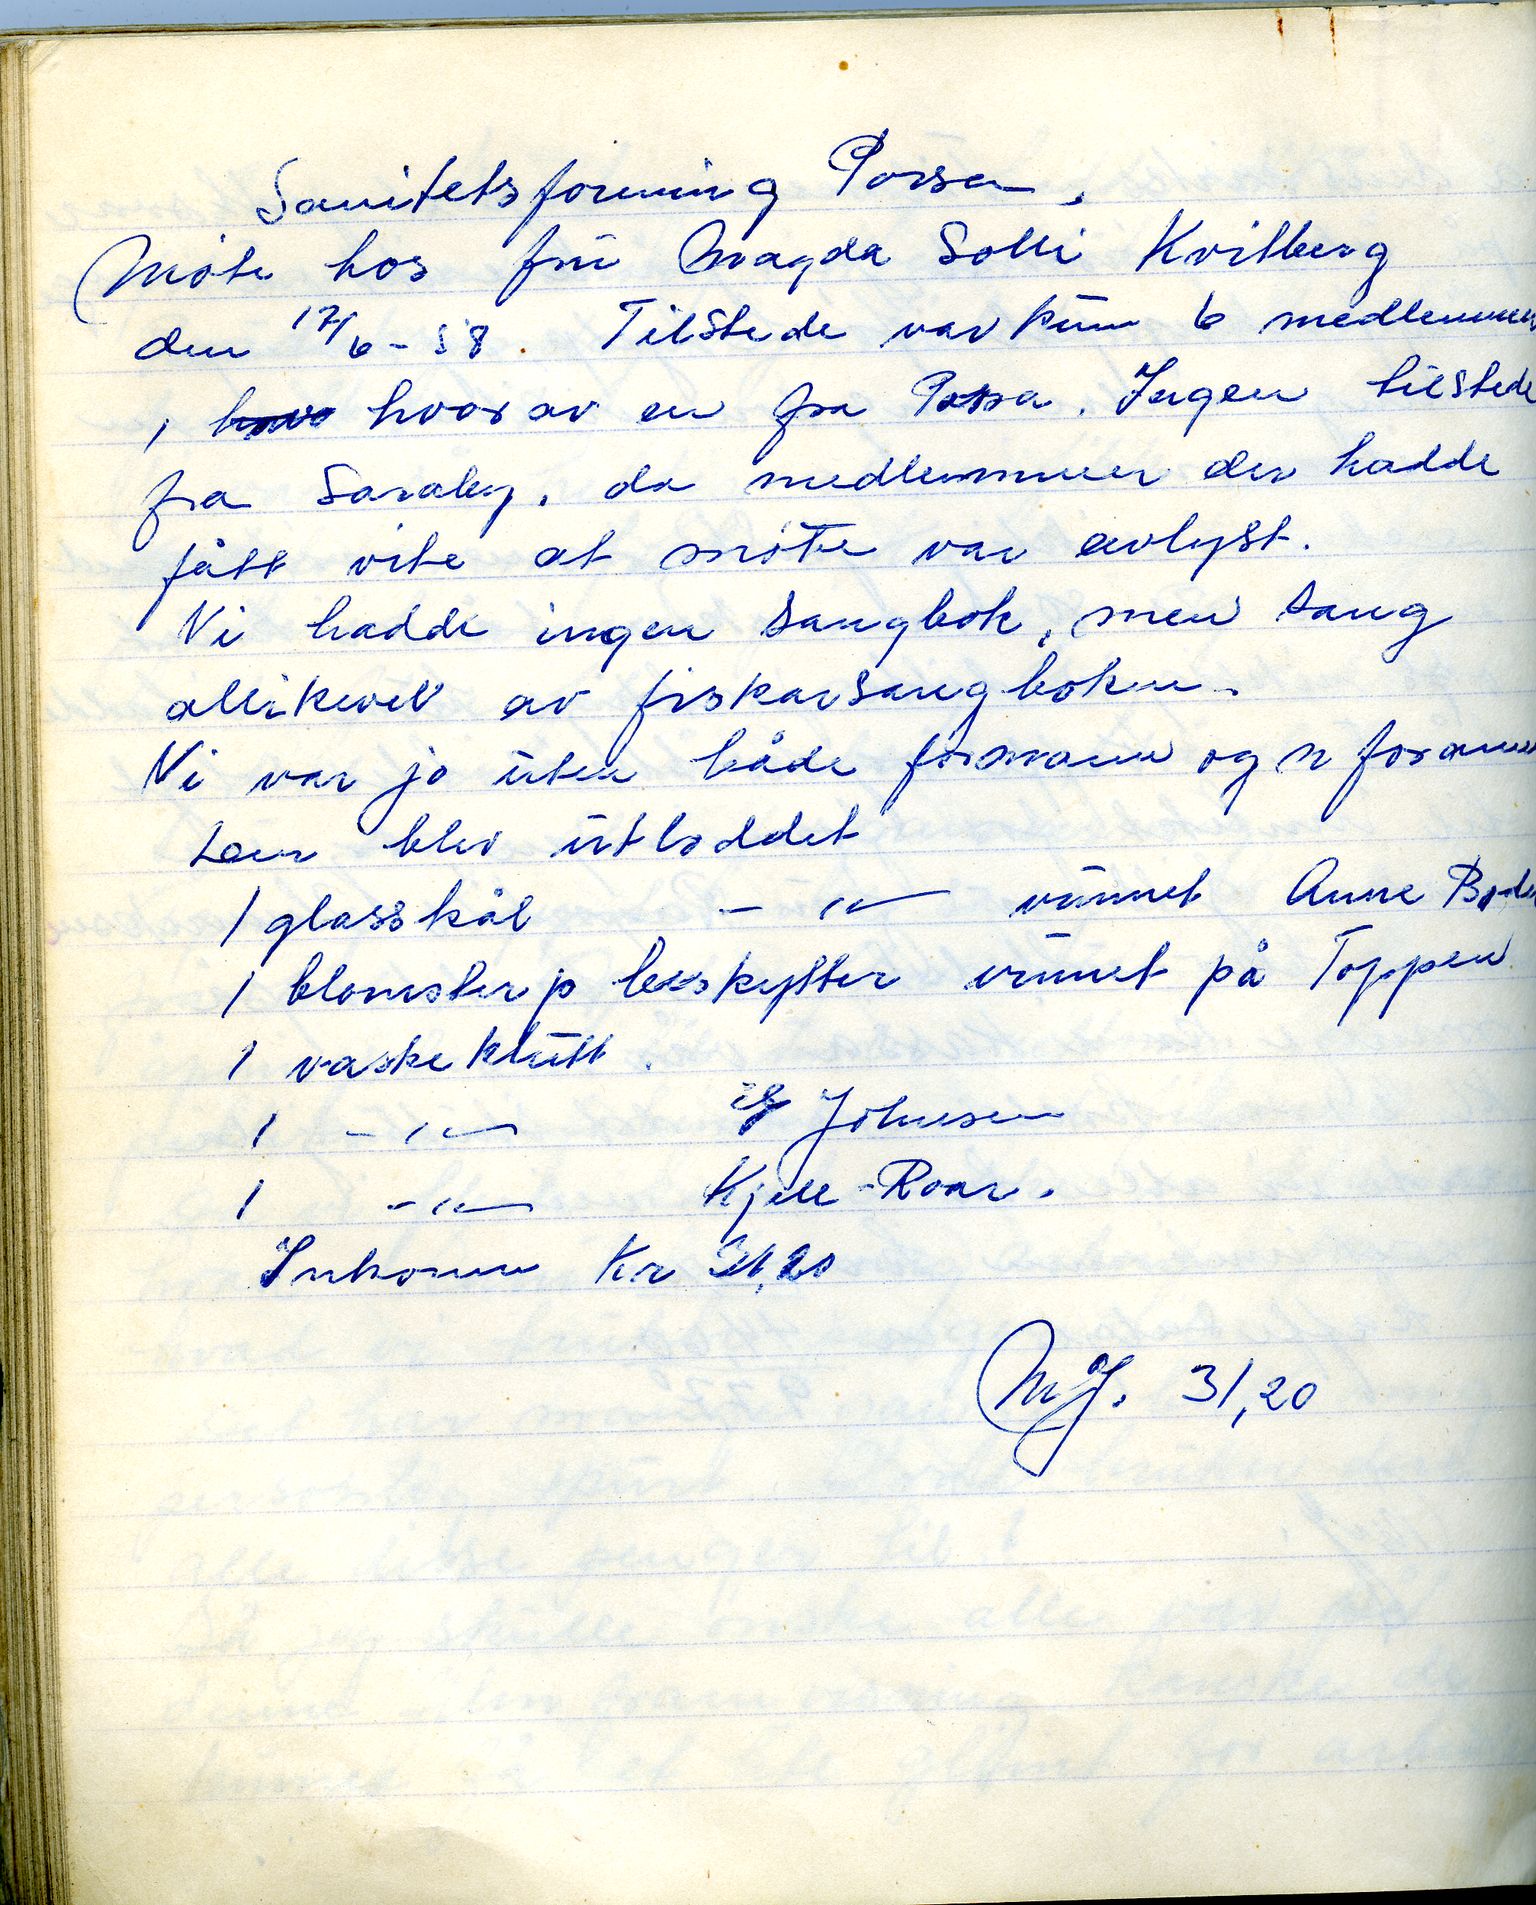 Sanitetsforening Porsa.
Møte hos frü Magda Solli Kvitberg
den 17/6-58. Tilstede var kün 6 medlemmer
, hvorav en fra Porsa. Ingen tilstede
fra Saraby, da medlemmer der hadde
fått vite at møte var avlyst.
Vi hadde ingen sangbok, men sang
allikevel av fiskarsangboken.
Vi var jo üten både formann og n formann
blev ütloddet
1 glasskål - " - vünnet Anne
1 blomsterp beskytter vünnet på Toppen
1 vaskeklütt.
1 - " - Johnsen
1 - " - Kjell-Roar.
Inkomme Kr 31,20
MJ. 31,20